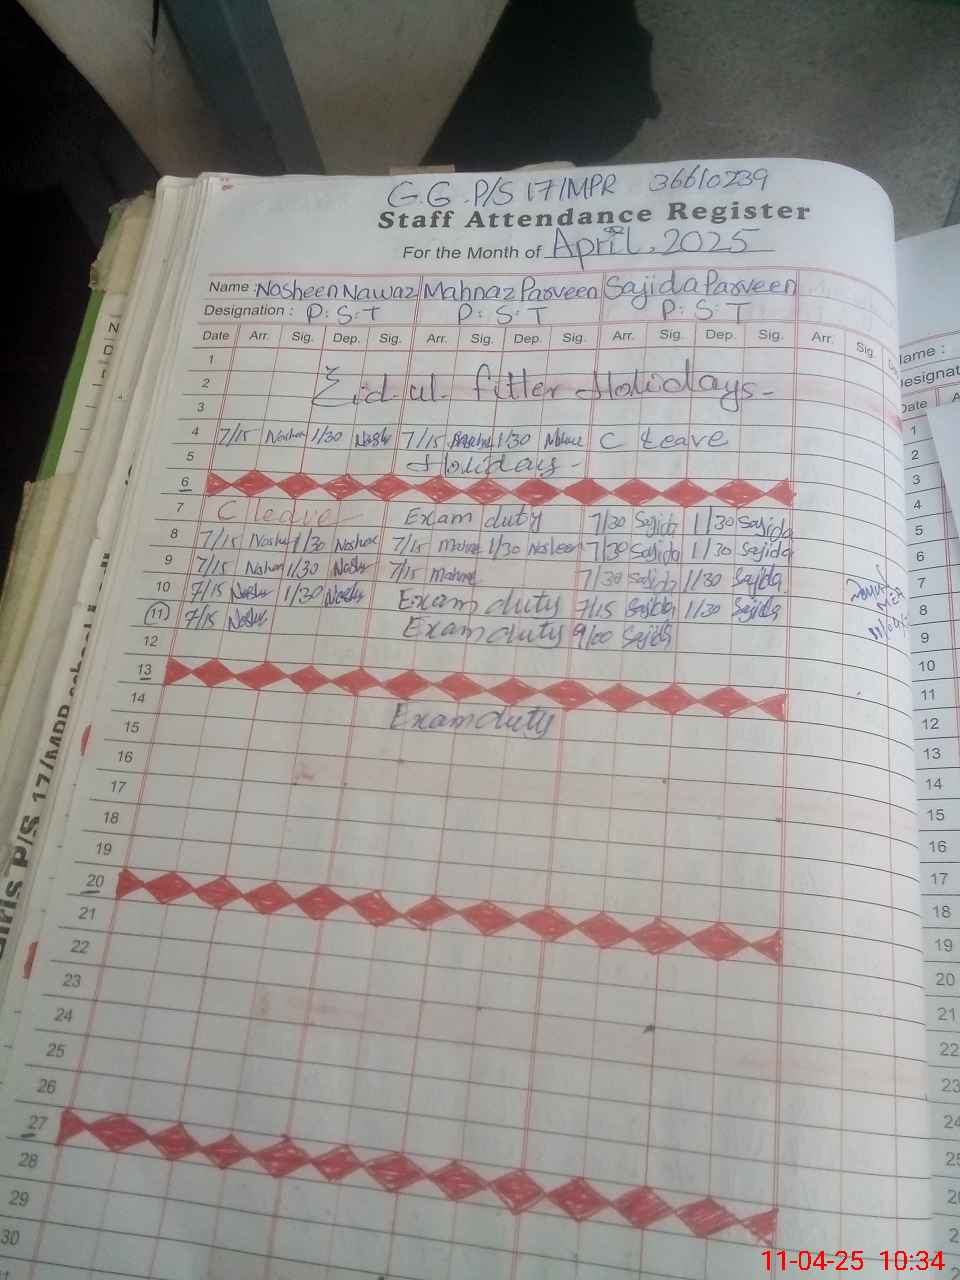 G.G.P/S 17/MPR 36610239
Staff Attendance Register
For the Month of April, 2025
Name: Nosheen Nawaz Mahnaz Parveen Sajida Parveen
Designation: P:S:T P:S:T P:S:T
Date Arr. Sig. Dep. Sig. Arr. Sig. Dep. Sig. Arr. Sig. Dep. Sig. Arr. Sig.
1
2 Eid.ul.fitter Holidays-
3
4 7/15 1/30 7/15 1/30 C Leave
5 Holidays-
6
7 C leave Exam duty 7/30 Sajida 1/30 Sajida
8 7/15 1/30 7/15 1/30 7/30 Sajida 1/30 Sajida
9 7/15 1/30 7/15 7/30 Sajida 1/30 Sajida
10 7/15 1/30 Exam duty 7/15 Sajida 1/30 Sajida
11 7/15 Exam duty 9/00 Sajida
12
13
14 Exam duty
15
16
17
18
19
20
21
22
23
24
25
26
27
28
29
30
Girls P/S 17/MPR
Name:
Date
1
2
3
4
5
6
7
8
9
10
11
12
13
14
15
16
17
18
19
20
21
22
23
24
11-04-25 10:34